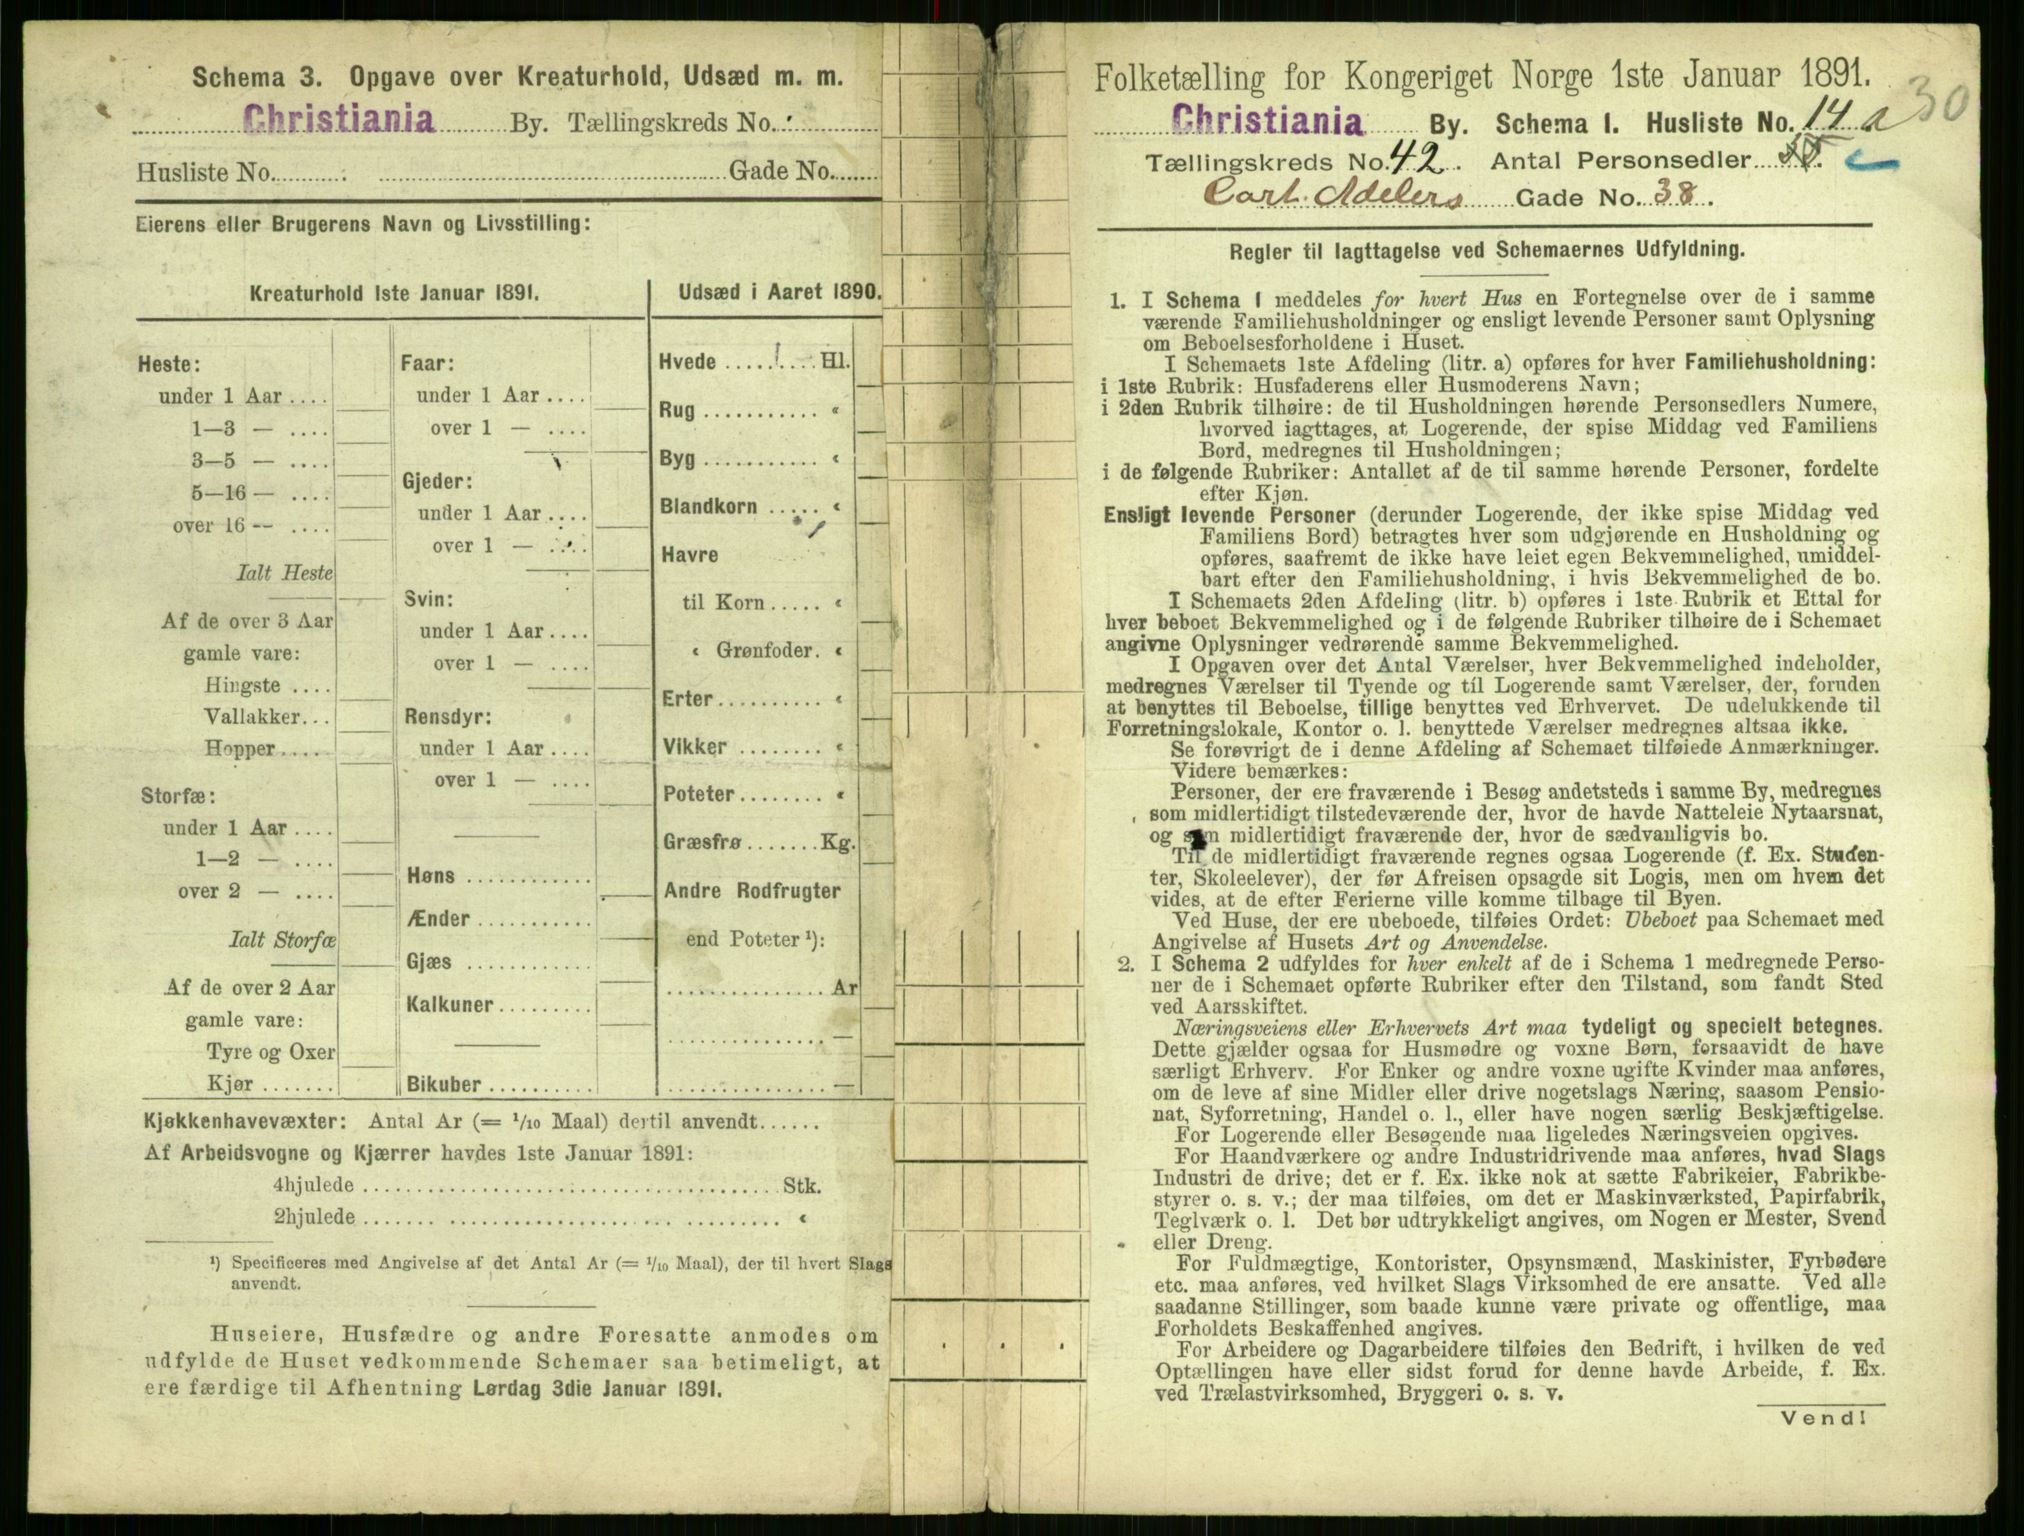 Schema 3. Opgave over Kreaturhold, Udsæd m. m.
Christiania By. Tællingskreds No.
Husliste No. Gade No.
Eierens eller Brugerens Navn og Livsstilling:
Kreaturhold 1ste Januar 1891.
Heste:
under 1 Aar ....
1—3 — ....
3—5 — ....
5—16 — ....
over 16 -- ....
Ialt Heste
Af de over 3 Aar
gamle vare:
Hingste ....
Vallakker...
Hopper ....
Storfæ:
under 1 Aar ....
1—2 — ....
over 2 — ....
Ialt Storfæ
Af de over 2 Aar
gamle vare:
Tyre og Oxer
Kjør .......
Faar:
under 1 Aar ....
over 1 — ....
Gjeder:
under 1 Aar ....
over 1 — ....
Svin:
under 1 Aar ....
over 1 — ....
Rensdyr:
under 1 Aar ....
over 1 — ....
Høns ............
Ænder ...........
Gjæs ............
Kalkuner .........
Bikuber ..........
Udsæd i Aaret 1890.
Hvede ......... Hl.
Rug ........... «
Byg ........... «
Blandkorn ..... «
Havre
til Korn ..... «
« Grønfoder. «
Erter .......... «
Vikker ........ «
Poteter ........ «
Græsfrø ....... Kg.
Andre Rodfrugter
end Poteter ¹):
............... Ar
............... —
............... —
Kjøkkenhavevæxter: Antal Ar (= 1/10 Maal) dertil anvendt......
Af Arbeidsvogne og Kjærrer havdes 1ste Januar 1891:
4hjulede ........................................ Stk.
2hjulede ........................................ «
¹) Specificeres med Angivelse af det Antal Ar (= 1/10 Maal), der til hvert Slags
anvendt.
Huseiere, Husfædre og andre Foresatte anmodes om
udfylde de Huset vedkommende Schemaer saa betimeligt, at
ere færdige til Afhentning Lørdag 3die Januar 1891.
Folketælling for Kongeriget Norge 1ste Januar 1891.
30
Christiania By. Schema 1. Husliste No. 14 a
Tællingskreds No. 42. Antal Personsedler
Carl Adelers Gade No. 38.
Regler til Iagttagelse ved Schemaernes Udfyldning.
1. I Schema 1 meddeles for hvert Hus en Fortegnelse over de i samme
værende Familiehusholdninger og ensligt levende Personer samt Oplysning
om Beboelsesforholdene i Huset.
I Schemaets 1ste Afdeling (litr. a) opføres for hver Familiehusholdning:
i 1ste Rubrik: Husfaderens eller Husmoderens Navn;
i 2den Rubrik tilhøire: de til Husholdningen hørende Personsedlers Numere,
hvorved iagttages, at Logerende, der spise Middag ved Familiens
Bord, medregnes til Husholdningen;
i de følgende Rubriker: Antallet af de til samme hørende Personer, fordelte
efter Kjøn.
Ensligt levende Personer (derunder Logerende, der ikke spise Middag ved
Familiens Bord) betragtes hver som udgjørende en Husholdning og
opføres, saafremt de ikke have leiet egen Bekvemmelighed, umiddel-
bart efter den Familiehusholdning, i hvis Bekvemmelighed de bo.
I Schemaets 2den Afdeling (litr. b) opføres i 1ste Rubrik et Ettal for
hver beboet Bekvemmelighed og i de følgende Rubriker tilhøire de i Schemaet
angivne Oplysninger vedrørende samme Bekvemmelighed.
I Opgaven over det Antal Værelser, hver Bekvemmelighed indeholder,
medregnes Værelser til Tyende og til Logerende samt Værelser, der, foruden
at benyttes til Beboelse, tillige benyttes ved Erhvervet. De udelukkende til
Forretningslokale, Kontor o. l. benyttede Værelser medregnes altsaa ikke.
Se forøvrigt de i denne Afdeling af Schemaet tilføiede Anmærkninger.
Videre bemærkes:
Personer, der ere fraværende i Besøg andetsteds i samme By, medregnes
som midlertidigt tilstedeværende der, hvor de havde Natteleie Nytaarsnat,
og som midlertidigt fraværende der, hvor de sædvanligvis bo.
Til de midlertidigt fraværende regnes ogsaa Logerende (f. Ex. Studen-
ter, Skoleelever), der før Afreisen opsagde sit Logis, men om hvem det
vides, at de efter Ferierne ville komme tilbage til Byen.
Ved Huse, der ere ubeboede, tilføies Ordet: Ubeboet paa Schemaet med
Angivelse af Husets Art og Anvendelse.
2. I Schema 2 udfyldes for hver enkelt af de i Schema 1 medregnede Perso-
ner de i Schemaet opførte Rubriker efter den Tilstand, som fandt Sted
ved Aarsskiftet.
Næringsveiens eller Erhvervets Art maa tydeligt og specielt betegnes.
Dette gjælder ogsaa for Husmødre og voxne Børn, forsaavidt de have
særligt Erhverv. For Enker og andre voxne ugifte Kvinder maa anføres,
om de leve af sine Midler eller drive nogetslags Næring, saasom Pensio-
nat, Syforretning, Handel o. l., eller have nogen særlig Beskjæftigelse.
For Logerende eller Besøgende maa ligeledes Næringsveien opgives.
For Haandværkere og andre Industridrivende maa anføres, hvad Slags
Industri de drive; det er f. Ex. ikke nok at sætte Fabrikeier, Fabrikbe-
styrer o. s. v.; der maa tilføies, om det er Maskinværksted, Papirfabrik,
Teglværk o. l. Det bør udtrykkeligt angives, om Nogen er Mester, Svend
eller Dreng.
For Fuldmægtige, Kontorister, Opsynsmænd, Maskinister, Fyrbødere
etc. maa anføres, ved hvilket Slags Virksomhed de ere ansatte. Ved alle
saadanne Stillinger, som baade kunne være private og offentlige, maa
Forholdets Beskaffenhed angives.
For Arbeidere og Dagarbeidere tilføies den Bedrift, i hvilken de ved
Optællingen have eller sidst forud for denne havde Arbeide, f. Ex.
ved Trælastvirksomhed, Bryggeri o. s. v.
Vend!